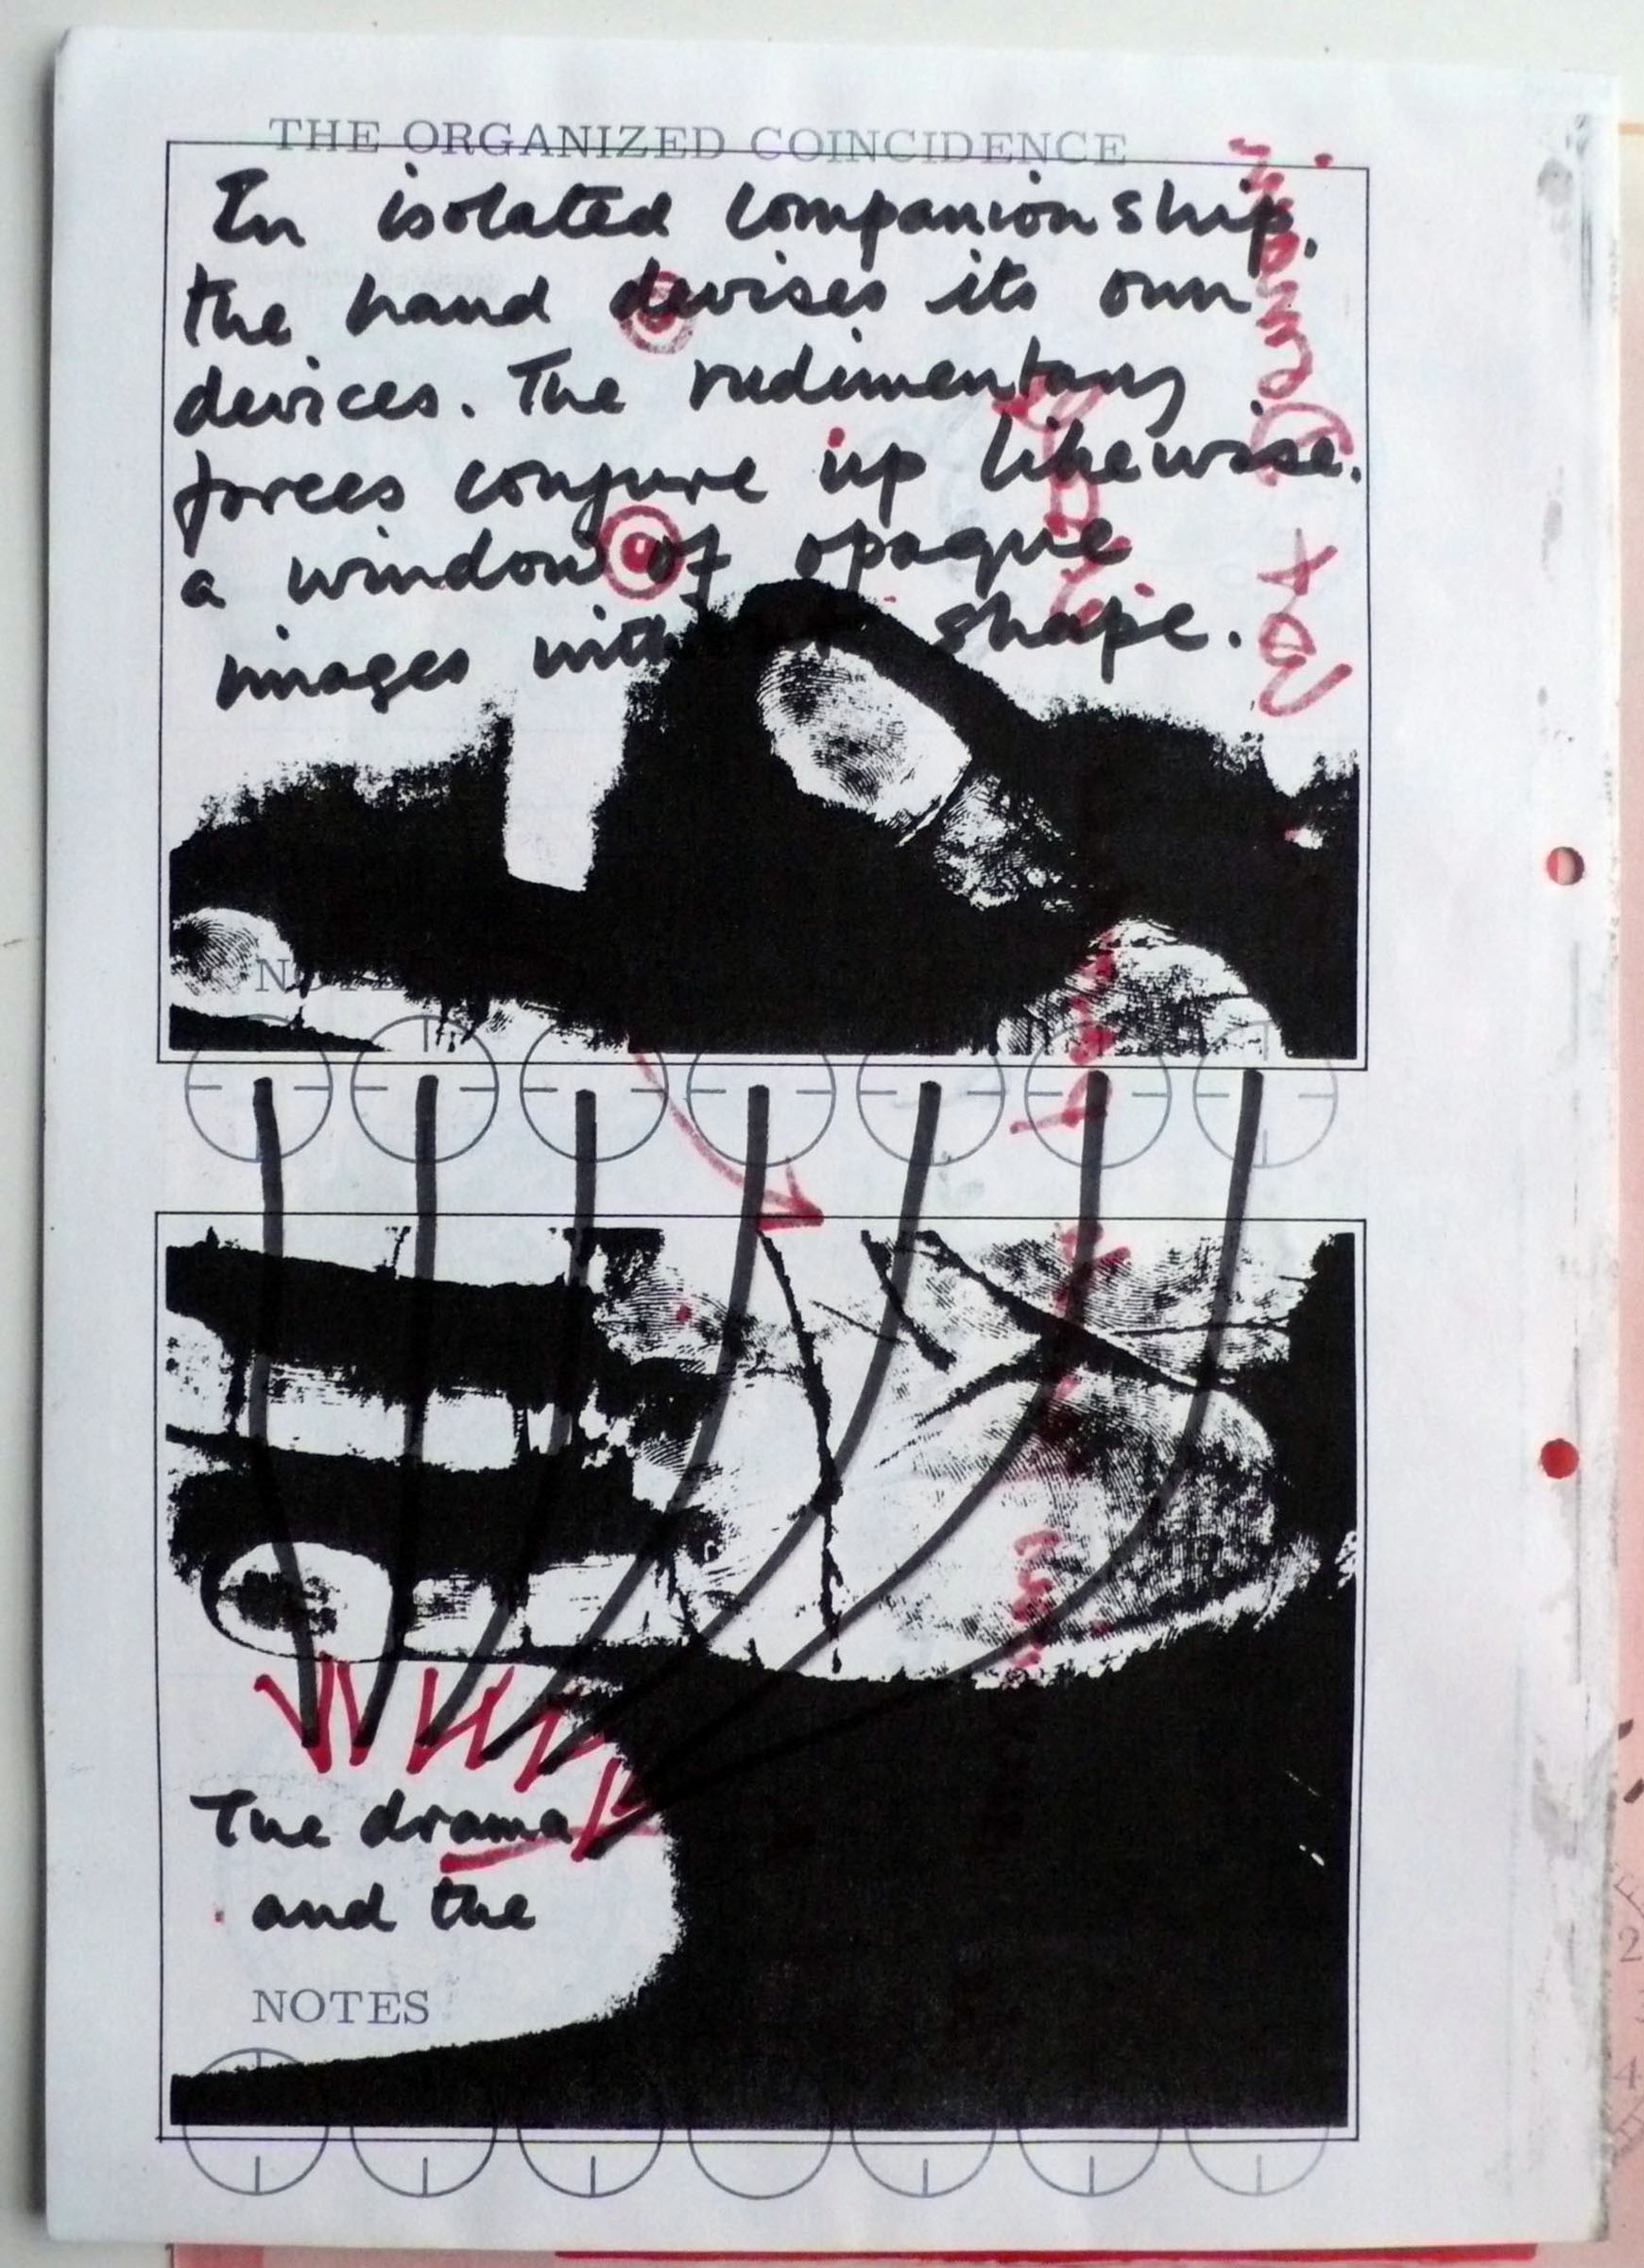 THE ORGANIZED COINCIDENCE
In isolated companionship,
the hand devises its own
devices. The rudimentary
forces conjure up likewise.
a window of opaque
images with shape.
NOTE
The drama
and the
NOTES